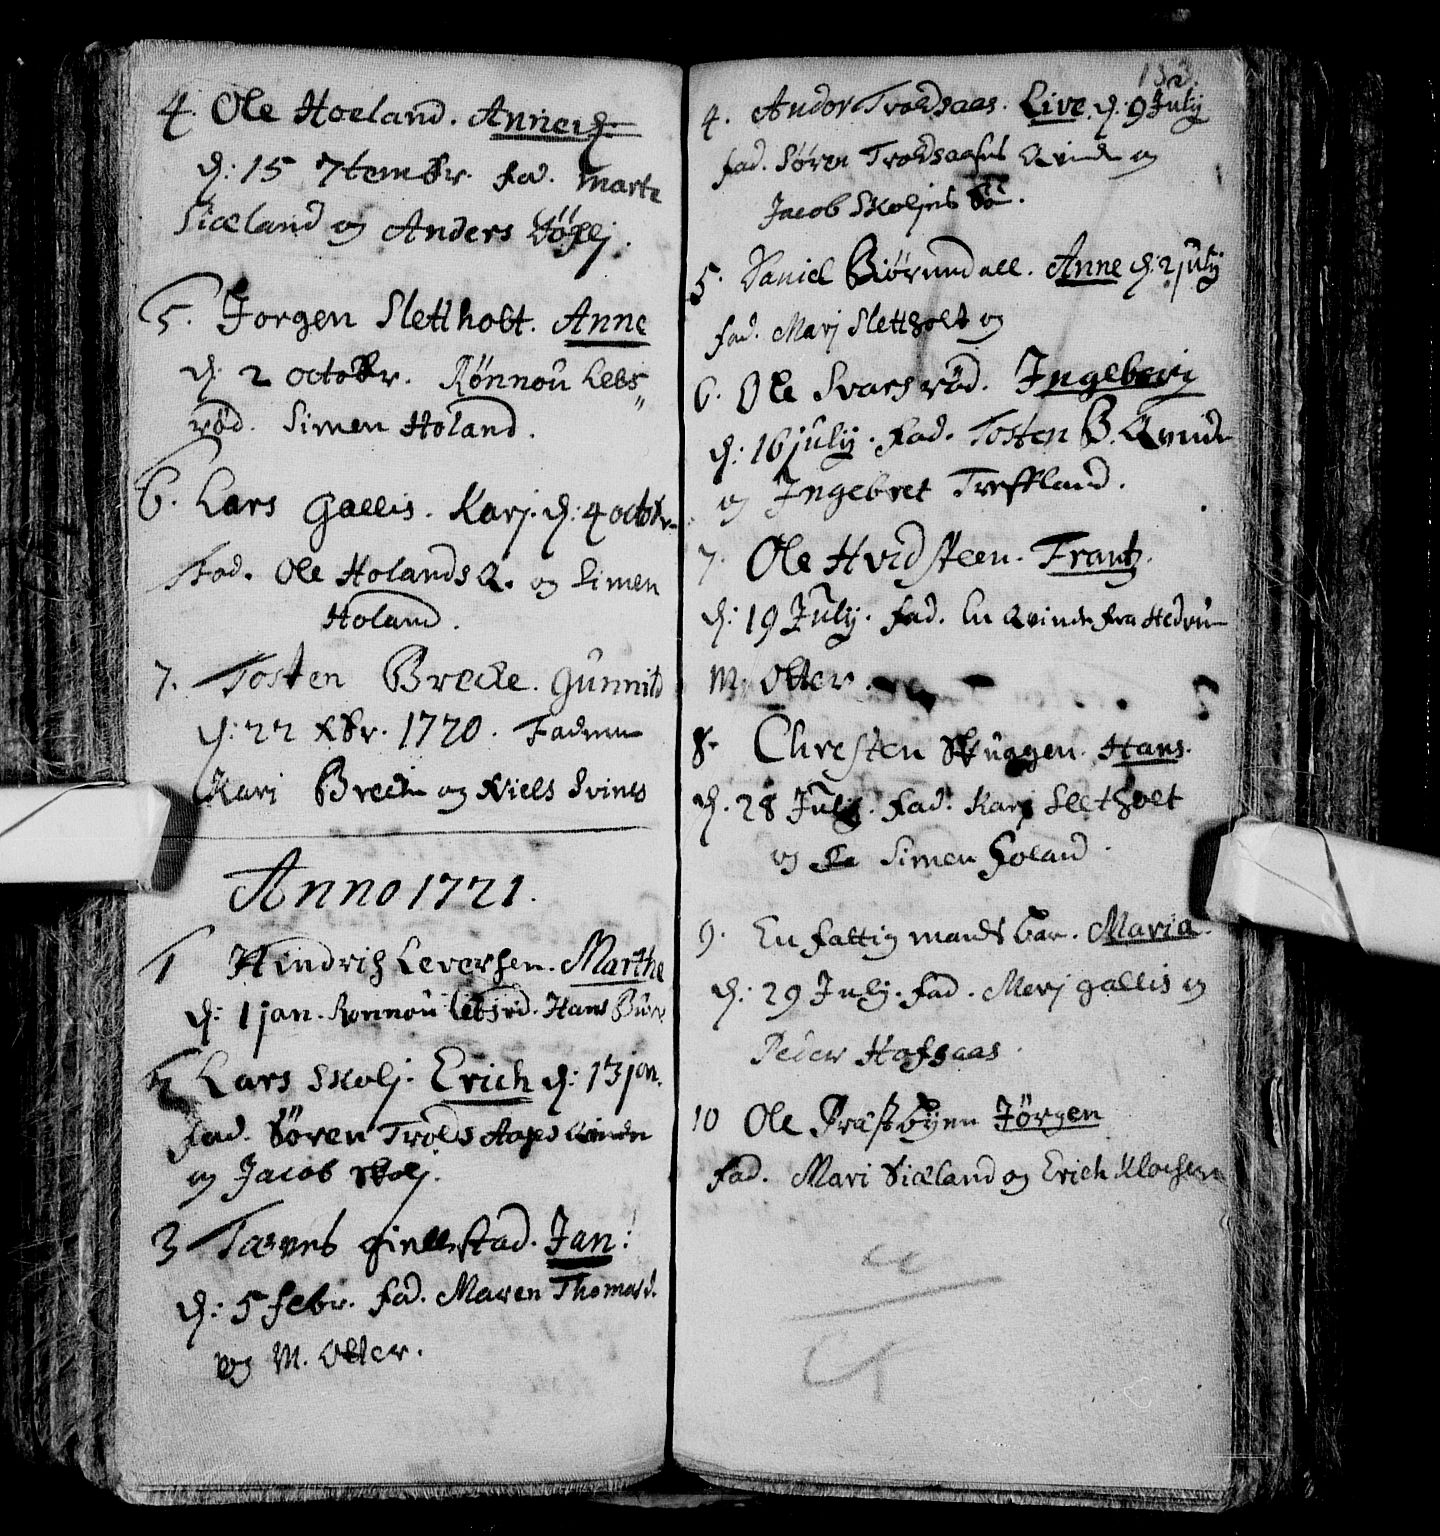 4. Ole Hoeland. Anne
d: 15 7tembr. fad. Marte
Siæland og Anders
5. Jorgen Slettholt. Anne
d: 2 octobr. Rönnou Lebs"
röd. Simen Holand.
6. Lars Gallis. Karj. d: 4 octobr.
Fad. Ole Holands Q. og Simen
Holand.
7. Tosten Brecke. Gunnild
d: 22 Xbr. 1720. Fadrene
Kari Breche og Niels Svines
Anno 1721.
1 Hindrich Leversen. Marthe
d: 1 jan. Ronnou Lebsrd. Hans
2 Lars Skolj. Erich d: 13 jan.
fad. Sören Trolds Qvinde
og Jacob Skolj.
3 giellstad. Jan:
d: 5 febr. fad. Maren Thomasd.
og M. Otter.
152.
4. Andor Troldsaas. Live. d: 9 July
fad. Sören Troldsaases Qvinde og
Jacob Skoljes Sö.
5. Daniel Biörundall. Anne d: 2 july
fad. Marj Slettholt og
6. Ole Svarsröd. Ingeborj
d: 16 july. fad. Tosten B. Qvinde
og Ingebret Treffland.
7. Ole Hvidsteen. Frantz.
d: 19 July. fad. En Qvinde fra Hedrum
M. Otter.
8. Christen Skuggen. Hans.
d. 28 July. fad. Karj Sletholt
og Simen Holand.
9. En fattig mands bar. Maria.
d: 29 July. fad. Merj Gallis og
Peder Hofsaas.
10 Ole Præstbyen Jörgen
fad. Mari Siæland og Erich Klochern